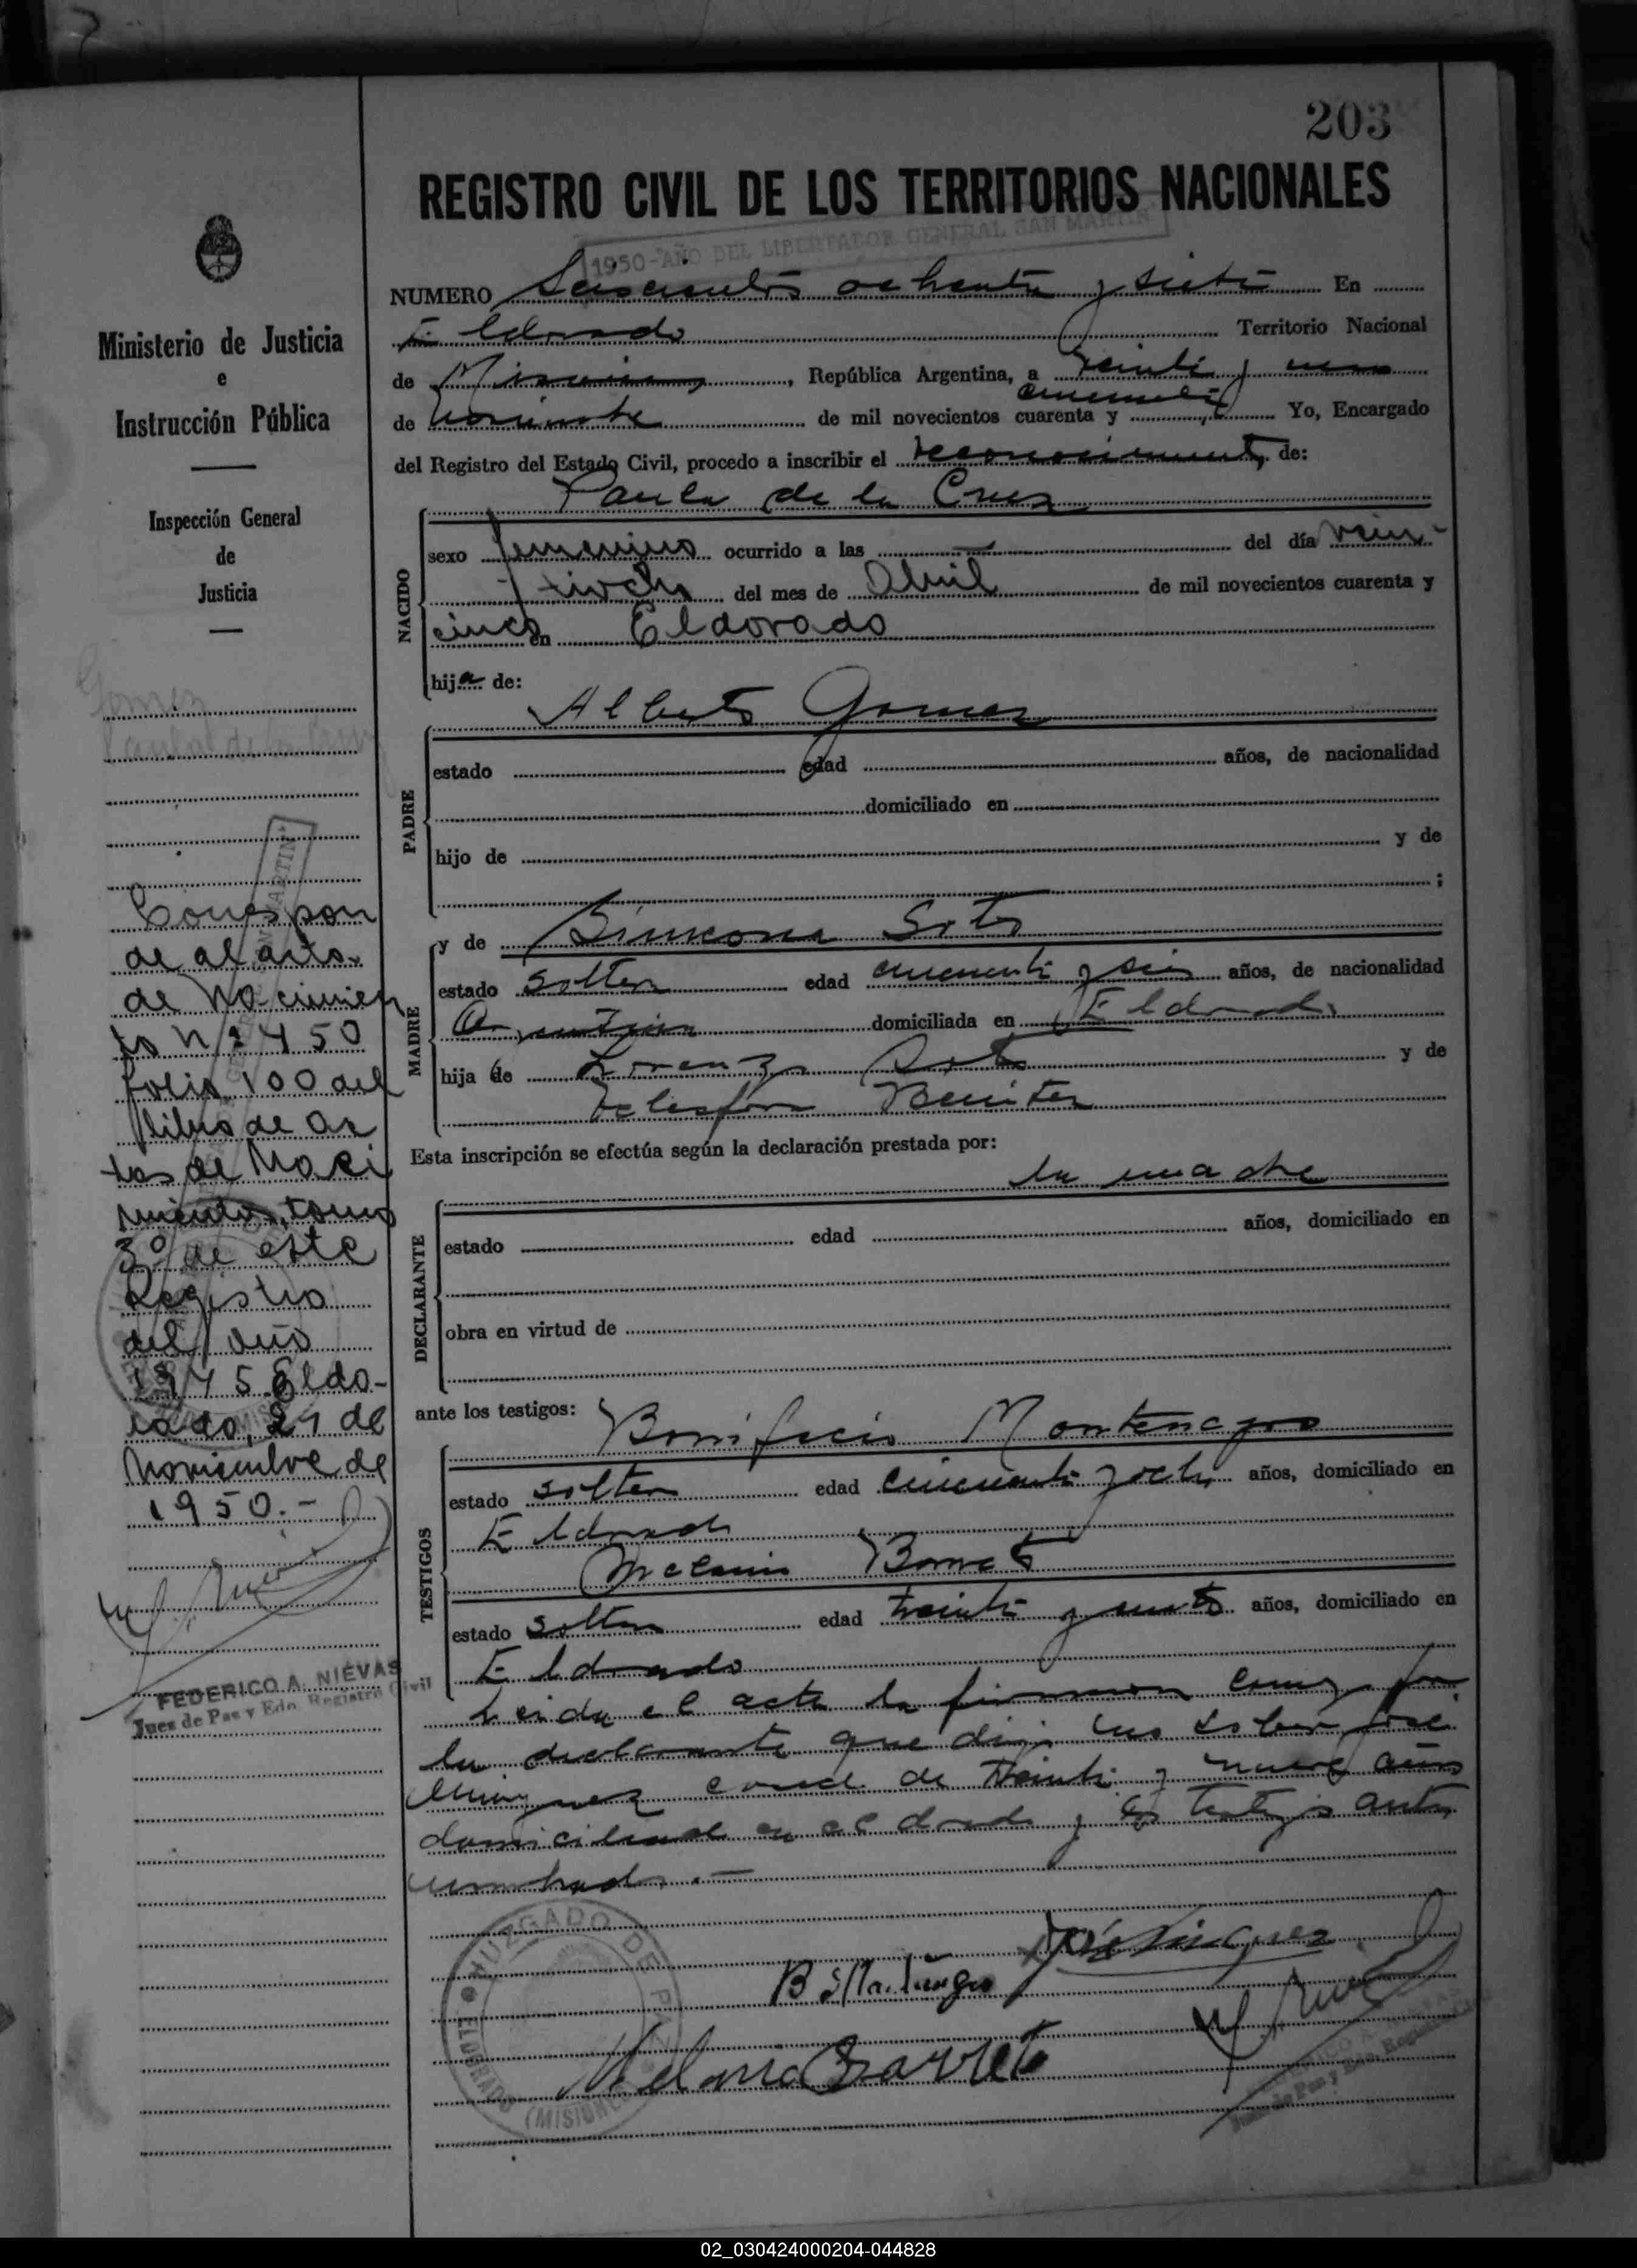 203
REGISTRO CIVIL DE LOS TERRITORIOS NACIONALES
1950-AÑO DEL LIBERTADOR GENERAL SAN MARTIN
NUMERO Seiscientos ochenta y siete En
Eldorado Territorio Nacional
de Misiones, República Argentina, a veinte y uno
de noviembre de mil novecientos cuarenta y cincuenta Yo, Encargado
del Registro del Estado Civil, procedo a inscribir el reconocimiento de:
Paula de la Cruz
NACIDO
sexo femenino ocurrido a las — del día vein-
tiocho del mes de Abril de mil novecientos cuarenta y
cinco en Eldorado
hija de:
PADRE
Alberto Gomez
estado edad años, de nacionalidad
domiciliado en
hijo de y de
;
MADRE
y de Simeona Soto
estado soltera edad cincuenta y seis años, de nacionalidad
Argentina domiciliada en Eldorado
hija de Lorenzo Soto y de
Telesfora Benitez
Esta inscripción se efectúa según la declaración prestada por:
la madre
DECLARANTE
estado edad años, domiciliado en
obra en virtud de
ante los testigos:
TESTIGOS
Bonifacio Montenegro
estado soltero edad cincuenta y ocho años, domiciliado en
Eldorado
Melanio Barreto
estado soltero edad treinta y años, domiciliado en
Eldorado
Leida el acta la firmaron conmigo por
la declarante que dijo no saber José
Miniguez casado de treinta y nueve años
domiciliado en eldorado y los testigos ante
nombrados.—
José Miniguez
B Montenegro
Melanio Barreto
JUZGADO DE PAZ
ELDORADO (MISIONES)
Ministerio de Justicia
e
Instrucción Pública
Inspección General
de
Justicia
Gomez
Paula de la Cruz
Correspon
de al acta
de nacimien
to Nº 450
folio 100 del
libro de ac
tas de Naci
mientos, tomo
3º de este
Registro
del año
1945. Eldo-
rado, 21 de
Noviembre de
1950.-
FEDERICO A. NIEVAS
Juez de Paz y Edo. Registro Civil
02_030424000204-044828